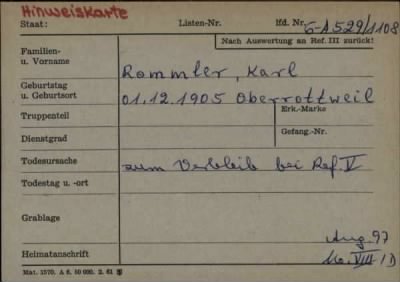 Hinweiskarte
Staat: Listen-Nr. lfd. Nr. G-A 529/1108
Nach Auswertung an Ref. III zurück!
Familien-
u. Vorname Rommler, Karl
Geburtstag
u. Geburtsort 01.12.1905 Oberrottweil
Truppenteil Erk.-Marke
Dienstgrad Gefang.-Nr.
Todesursache zum Verbleib bei Ref. V
Todestag u. -ort
Grablage
Aug. 97
Heimatanschrift VIII/D
Mat. 1570. A 6. 50 000. 2. 61